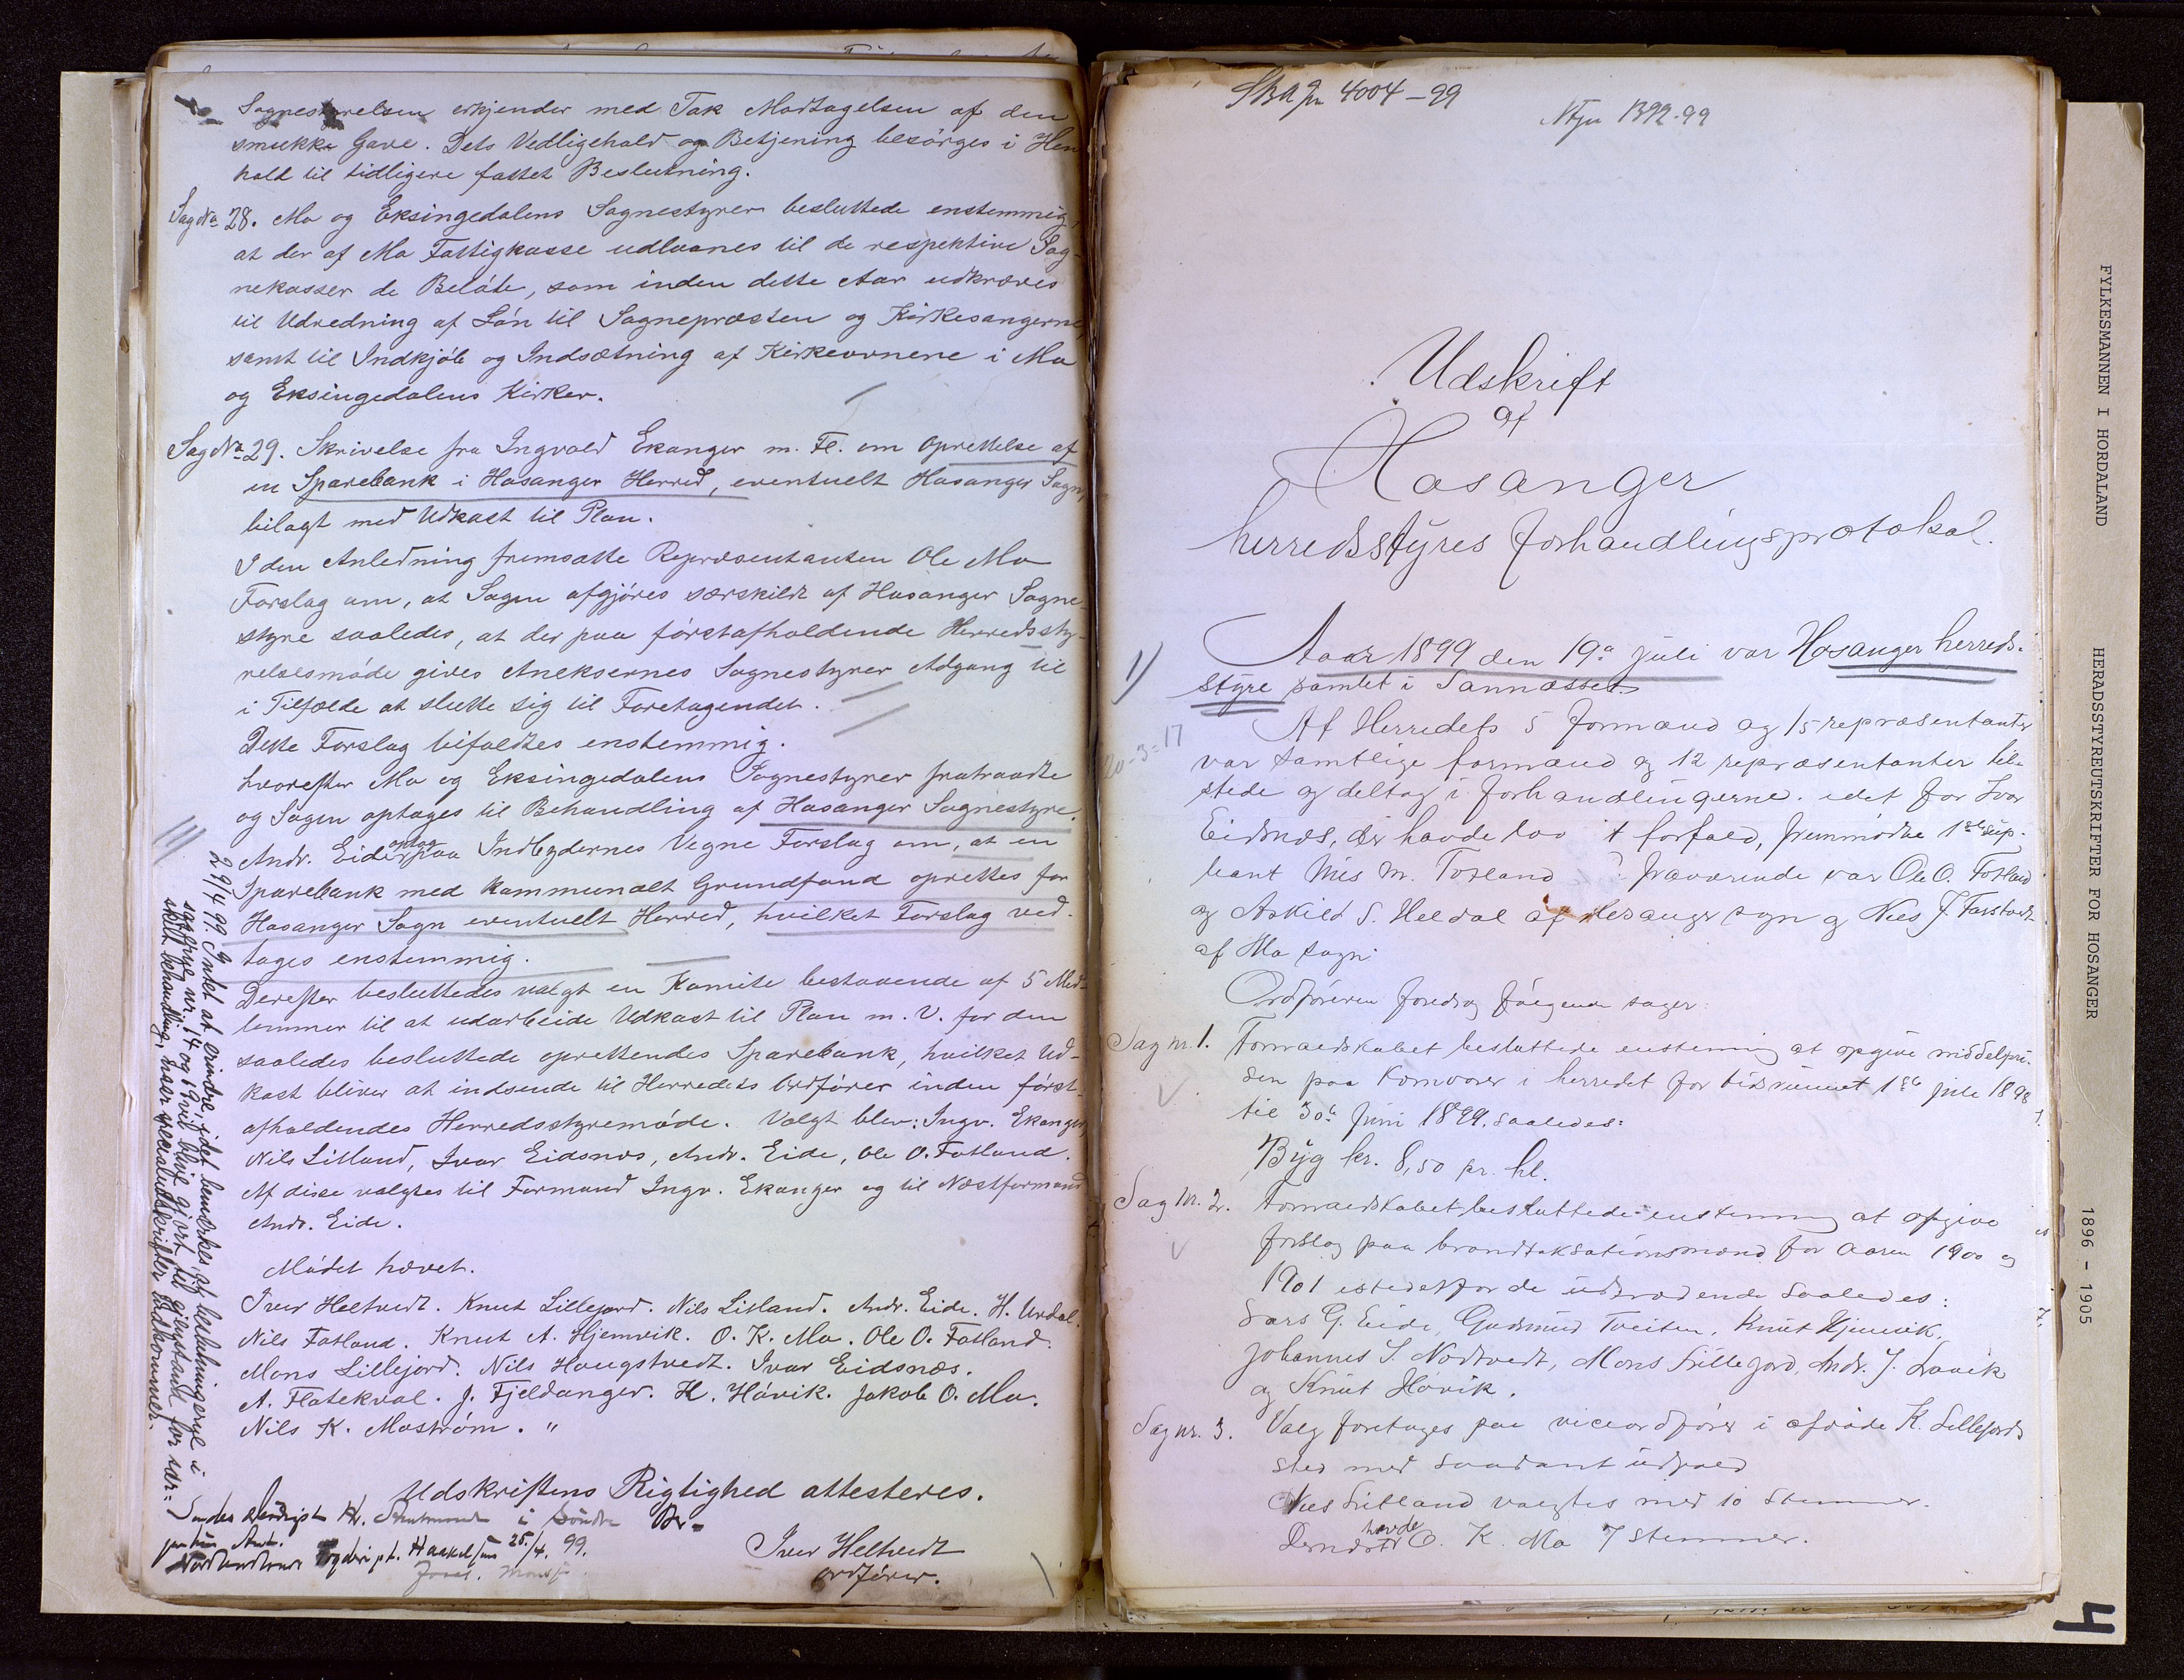 Sognestyrelsen erkjender med Tak Modtagelsen af den
smukke Gave. Dets Vedligehold og Betjening besörges i Hen
hold til tidligere fattet Beslutning.
Sag No 28. Mo og Eksingedalens Sognestyrer besluttede enstemmig,
at der af Mo Fattigkasse udlaanes til de respektive Sog-
nekasser de Belöb, som inden dette Aar udkræves
til Udredning af Lön til Sognepræsten og Kirkesangerne,
samt til Indkjöb og Indsætning af Kirkeovnene i Mo
og Eksingedalens Kirker.
Sag No 29. Skrivelse fra Ingvald Ekanger m. Fl. om Oprettelse af
en Sparebank i Hosanger Herred, eventuelt Hosanger Sogn,
bilagt med Udkast til Plan.
I den Anledning fremsatte Repræsentanten Ole Mo
Forslag om, at Sagen afgjöres særskildt af Hosanger Sogne-
styre saaledes, at der paa förstafholdende Herredssty-
relsesmöde gives Aneksernes Sognestyrer Adgang til
i Tilfælde at slutte sig til Foretagendet.
Dette Forslag bifaldtes enstemmig.
hvorefter Mo og Eksingedalens Sognestyrer fratraadte
og Sagen optages til Behandling af Hosanger Sognestyre.
Andr. Eide optog paa Indbydernes Vegne Forslag om, at en
Sparebank med kommunalt Grundfond oprettes for
Hosanger Sogn eventuelt Herred, hvilket Forslag ved-
tages enstemmig.
Derefter besluttedes valgt en Komite bestaaende af 5 Med-
lemmer til at udarbeide Udkast til Plan m. V. for den
saaledes besluttede oprettendes Sparebank, hvilket Ud-
kast bliver at indsende til Herredets Ordförer inden först-
afholdendes Herredsstyremöde. Valgt blev: Ingv. Ekanger,
Nils Litland, Ivar Eidsnæs, Andr. Eide, Ole O. Fotland.
Af disse valgtes til Formand Ingv. Ekanger og til Næstformand
Andr. Eide.
Mödet hævet.
Iver Heltvedt. Knut Lillejord. Nils Litland. Andr. Eide. H. Urdal.
Nils Fotland. Knut A. Hjemvik. O. K. Mo. Ole O. Fotland.
Mons Lillejord. Nils Haugstvedt. Ivar Eidsnæs.
A. Flatekval. J. Fjeldanger. H. Hövik. Jakob O. Mo.
Nils K. Moström. "
Udskriftens Rigtighed attesteres.
Iver Heltvedt
ordförer.
Sendes ærbödigst Hr. Amtmanden i Söndre Ber-
genhus Amt.
Nordhordlands Fogderi p.t. Haakelsun 25/4. 99.
29/4 99. Intet at erindre, idet bemærkes, at beslutningerne i
sagerne nr. 14 og 19 vil blive gjort til gjenstand for sær-
skilt behandling, naar specialudskrifter indkommer.
Ska Jn 4004-99
Njn 1392-99
Udskrift
af
Hosanger
herredsstyres forhandlingsprotokol.
1)
Aar 1899 den 19de juli var Hosanger herreds-
styre samlet i Tannæsset.
20-3=17
Af Herredets 5 formænd og 15 repræsentanter
var samtlige formænd og 12 repræsentanter til-
stede og deltog i forhandlingerne. idet for Ivar
Eidsnæs, der havde lovligt forfald, fremmödte 1ste sup-
leant Nils M. Totland. Fraværende var Ole O. Fotland
og Askild S. Heldal af Hosanger sogn og Nils J. Farstvedt
af Mo sogn.
Ordföreren foredrog fölgende sager:
Sag nr. 1. Formandskabet besluttede enstemmig at opgive middelpri-
sen paa kornvarer i herredet for tidsrummet 1ste juli 1898
til 30te juni 1899. saaledes:
Byg kr. 8,50 pr. hl.
Sag nr. 2. Formandskabet besluttede enstemmig at opgive
forslag paa brandtaksationsmænd for aaren 1900 og
1901 istedetfor de udtrædende saaledes:
Lars G. Eide, Gudmund Tveiten, Knut Hjemvik,
Johannes S. Nodtvedt, Mons Lillejord, Andr. J. Lavik
og Knut Hövik.
Sag nr. 3. Valg foretages paa viceordförer i afdöde K. Lillejords
sted med saadant udfald
Nils Litland valgtes med 10 stemmer.
Dernæst havde O. K. Mo 7 stemmer.
FYLKESMANNEN I HORDALAND
HERADSSTYREUTSKRIFTER FOR HOSANGER
1896 - 1905
4